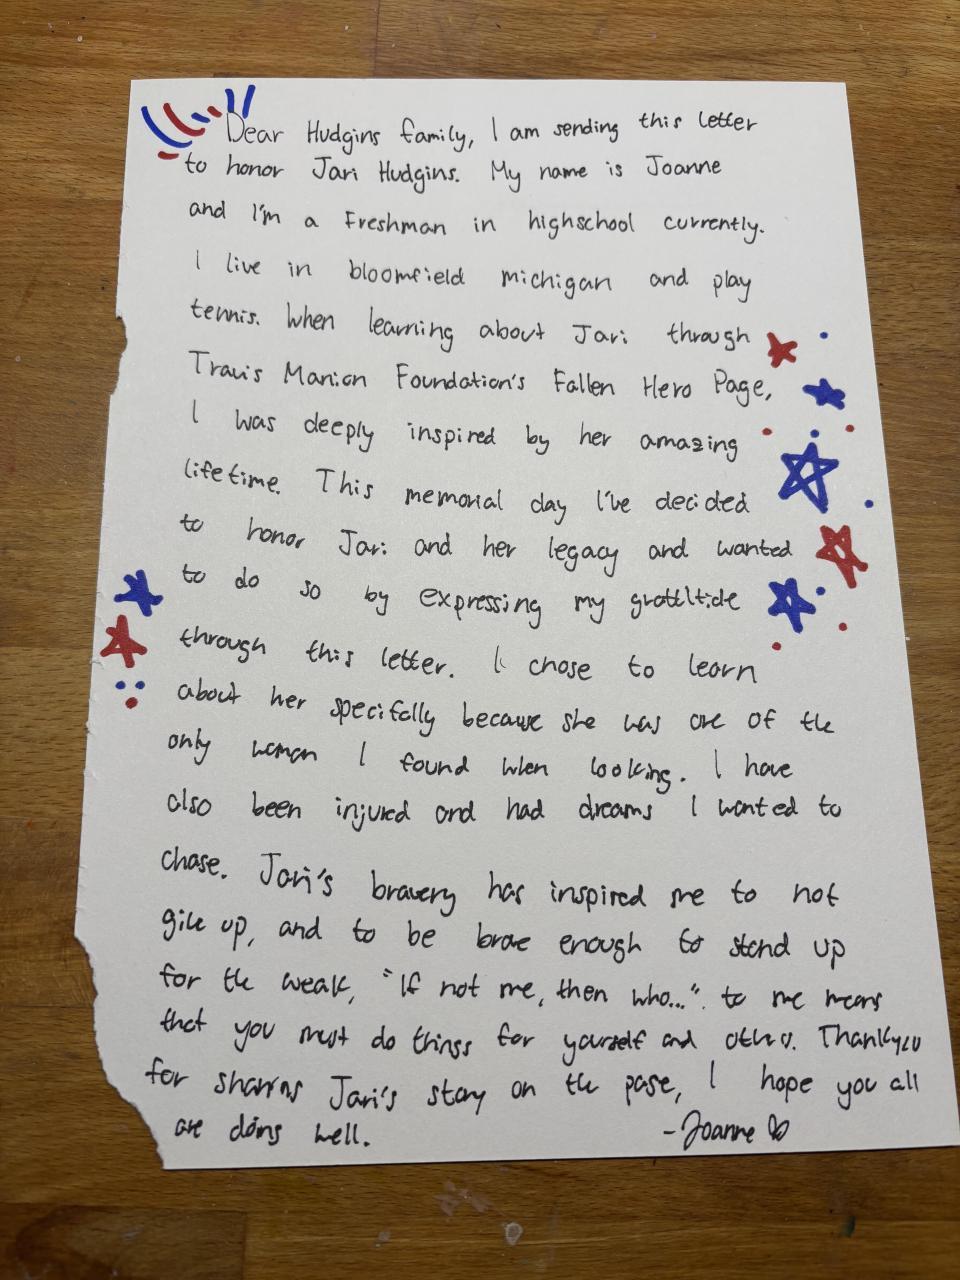 Dear Hudgins family, I am sending this letter
to honor Jari Hudgins. My name is Joanne
and I'm a Freshman in highschool currently.
I live in bloomfield michigan and play
tennis. When learning about Jari through
Travis Manion Foundation's Fallen Hero Page,
I was deeply inspired by her amazing
lifetime. This memorial day I've decided
to honor Jari and her legacy and wanted
to do so by expressing my gratitide
through this letter. I chose to learn
about her specifally because she was one of the
only woman I found when looking. I have
also been injured and had dreams I wanted to
chase. Jari's bravery has inspired me to not
give up, and to be brave enough to stand up
for the weak, "If not me, then who...". to me means
that you must do things for yourself and others. Thankyou
for sharing Jari's story on the page, I hope you all
are doing well. -Joanne